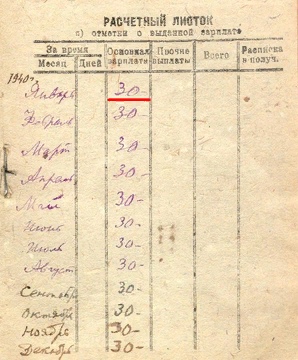 РАСЧЕТНЫЙ ЛИСТОК
с) отметки о выданной зарплате
За время Основная зарплата Прочие выплаты Всего Расписка в получ.
Месяц Дней
1940 г.
Январь 30-
Февраль 30-
Март 30-
Апрель 30-
Май 30-
Июнь 30-
Июль 30-
Август 30-
Сентябрь 30-
Октябрь 30-
Ноябрь 30-
Декабрь 30-